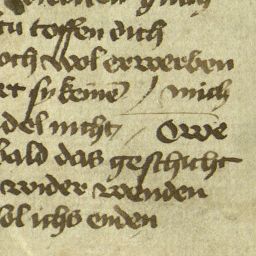 tu toffen dich
och wol erwerben
rt sy keinē / mich
del nicht / Owe
bald das geschicht
wider wenden
ol ichs enden